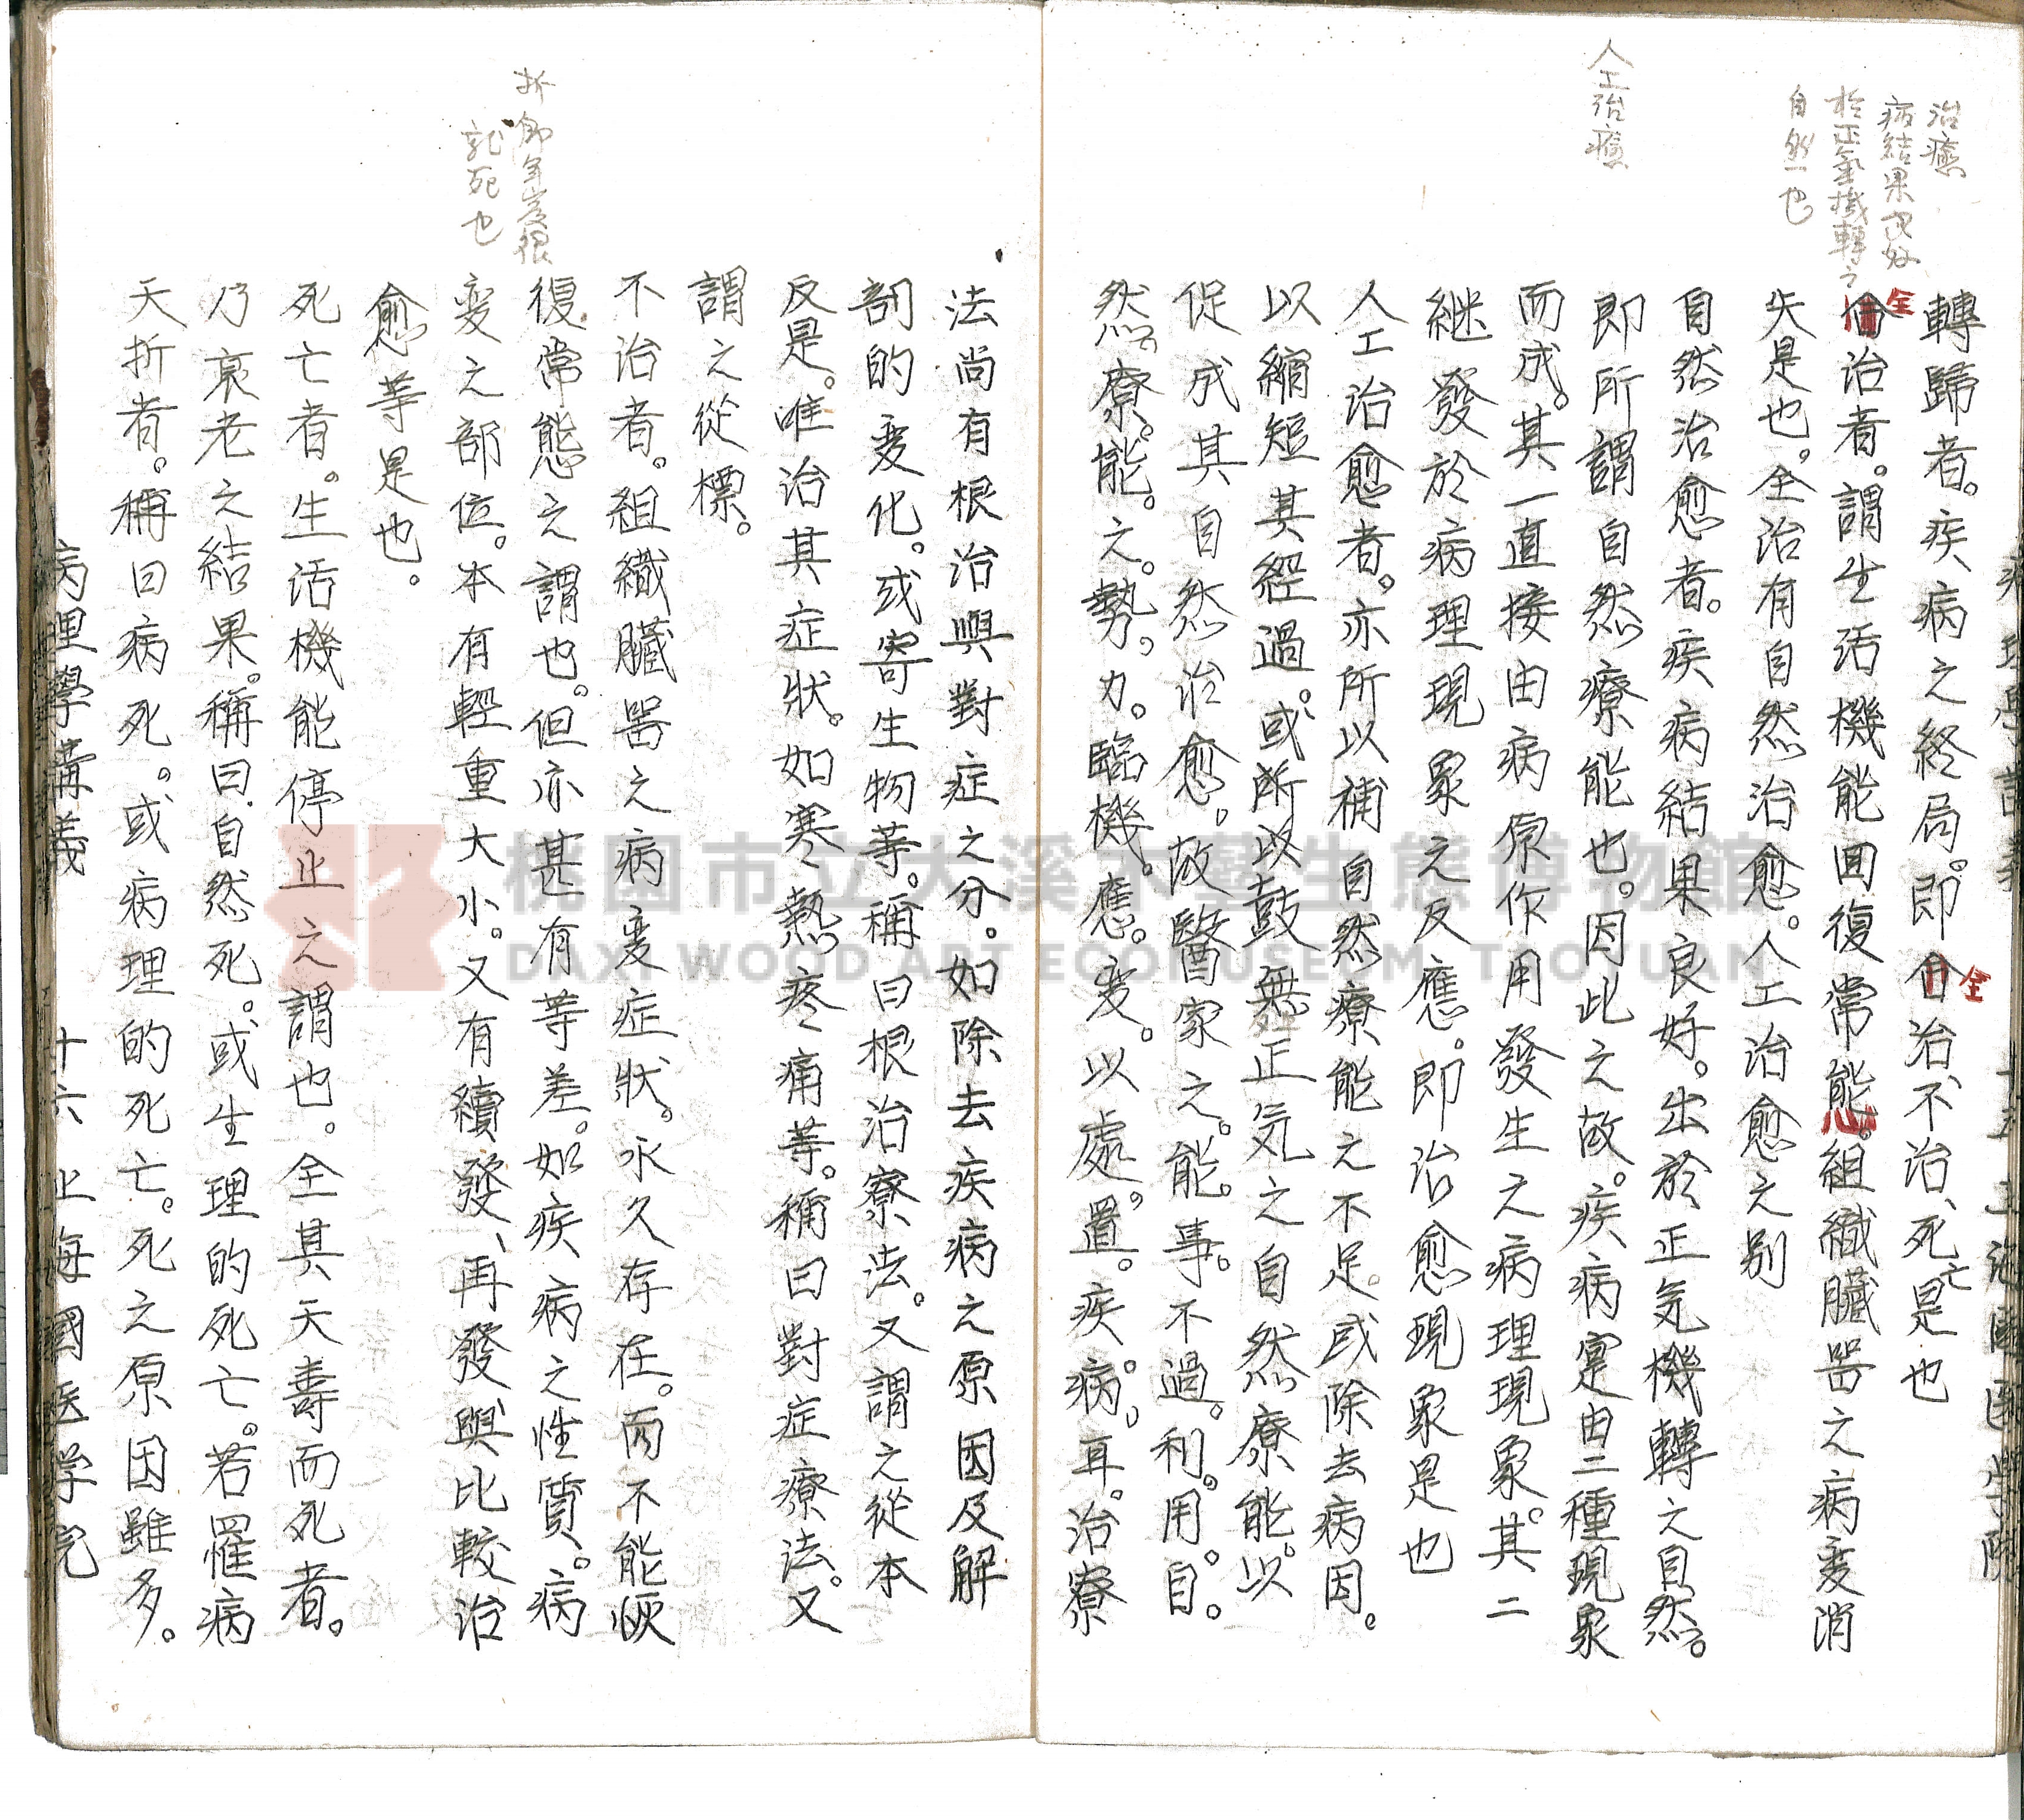 治癒
病結果良好
於正氣機轉之
自然也
人工治癒
轉歸者。疾病之終局。即全治、不治、死亡是也
全治者。謂生活機能回復常態。組織臟器之病変消
失是也。全治有自然治愈。人工治愈之別
自然治愈者。疾病結果良好。出於正気機轉之自然。
即所謂自然療能也。因此之故。疾病寔由二種現象
而成。其一直接由病原作用發生之病理現象。其二
継發於病理現象之反應。即治愈現象是也
人工治愈者。亦所以補自然療能之不足。或除去病因。
以縮短其経過。或所以鼓無正気之自然療能。以
促成其自然治愈。故醫家之。能。事。不過。利。用。自。
然。療。能。之。勢。力。臨機。應。変。以處。置。疾。病。耳。治療
法尚有根治與對症之分。如除去疾病之原因及解
剖的変化。或寄生物等。稱曰根治療法。又謂之從本
反是。唯治其症狀。如寒熱疼痛等。稱曰對症療法。又
謂之從標。
不治者。組織臟器之病変症狀。永久存在。而不能恢
復常態之謂也。但亦甚有等差。如疾病之性質。病
変之部位。本有輕重大小。又有續發、再發、與比較治
愈等是也。
死亡者。生活機能停止之謂也。全其天壽而死者。
乃衰老之結果。稱曰自然死。或生理的死亡。若罹病
夭折者。稱曰病死。或病理的死亡。死之原因雖多。
折即年歲很
就死也
病理學講義 十六 上海國医学院
桃園市立大溪木藝生態博物館
DAXI WOOD ART ECOMUSEUM, TAOYUAN